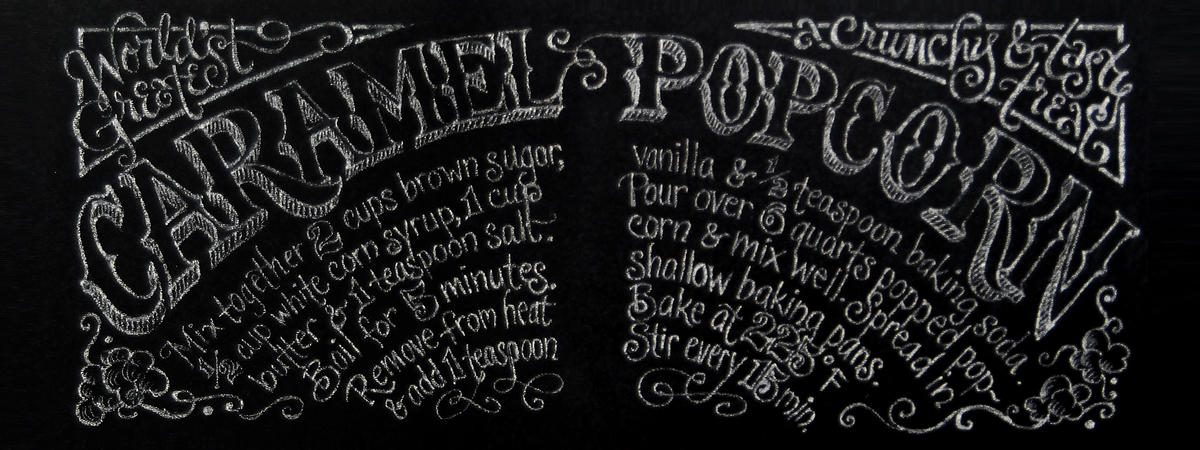 World's
Greatest
CARAMEL POPCORN
a crunchy & tasty
treat
Mix together 2 cups brown sugar,
1/2 cup white corn syrup, 1 cup
butter & 1 teaspoon salt.
Boil for 5 minutes.
Remove from heat
& add 1 teaspoon
vanilla & 1/2 teaspoon baking soda.
Pour over 6 quarts popped pop-
corn & mix well. Spread in
shallow baking pans.
Bake at 225°F
Stir every 15 min.